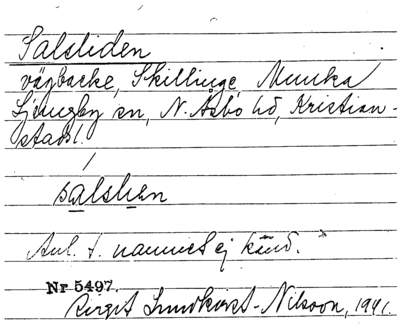 Salsliden
vägbacke, Skillinge, Munka
Ljungby sn, N. Åsbo hd, Kristian-
stads l.
salslien
Anl. t. namnet ej känd.
Nr 5497.
Birgit Lundkvist-Nilsson, 1941.